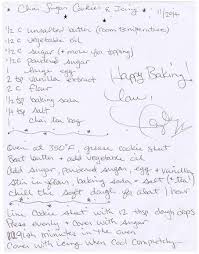 Chai Sugar Cookies & Icing 11/2014
1/2 c unsalted butter (room temperature)
1/2 c vegetable oil
1/2 c sugar (+ more for topping)
1/2 c powdered sugar
1 large egg
2 tsp vanilla extract
2 c flour
1/2 tsp baking soda
1/4 tsp salt
chai tea bag
Happy Baking!
Love,
Oven at 350°F, grease cookie sheet
Beat butter + add vegetable oil
Add sugar, powdered sugar, egg + vanilla
Stir in flour, baking soda + salt (+ tea)
Chill the soft dough for about 1 hour
Line cookie sheet with 1/2 tbsp dough
Press evenly + cover with sugar
minutes in the oven
Cover with icing when cool completely